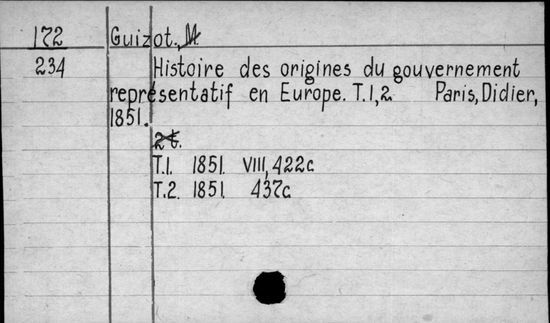 172 Guizot., M.
234 Histoire des origines du gouvernement
représentatif en Europe. T.1,2 Paris, Didier,
1851.
2 t.
T.1. 1851. VIII, 422c
T.2. 1851. 437c